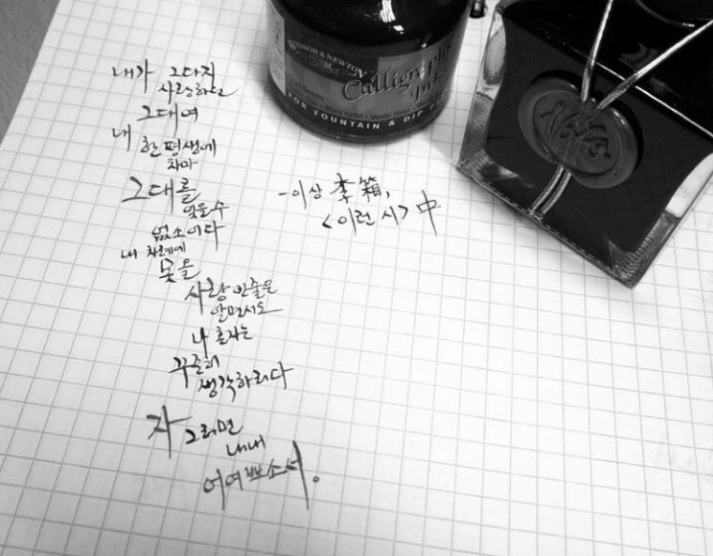 내가 그다지
사랑하던
그대여
내 한평생에
차마
그대를
잊을수
없소이다
내 차례에
못올
사랑인줄은
알면서도
나 혼자는
꾸준히
생각하리다
자 그러면
내내
어여쁘소서.
-이상 李箱,
<이런 시> 中
WINSOR & NEWTON
Calligraphy
Ink
FOR FOUNTAIN & DIP